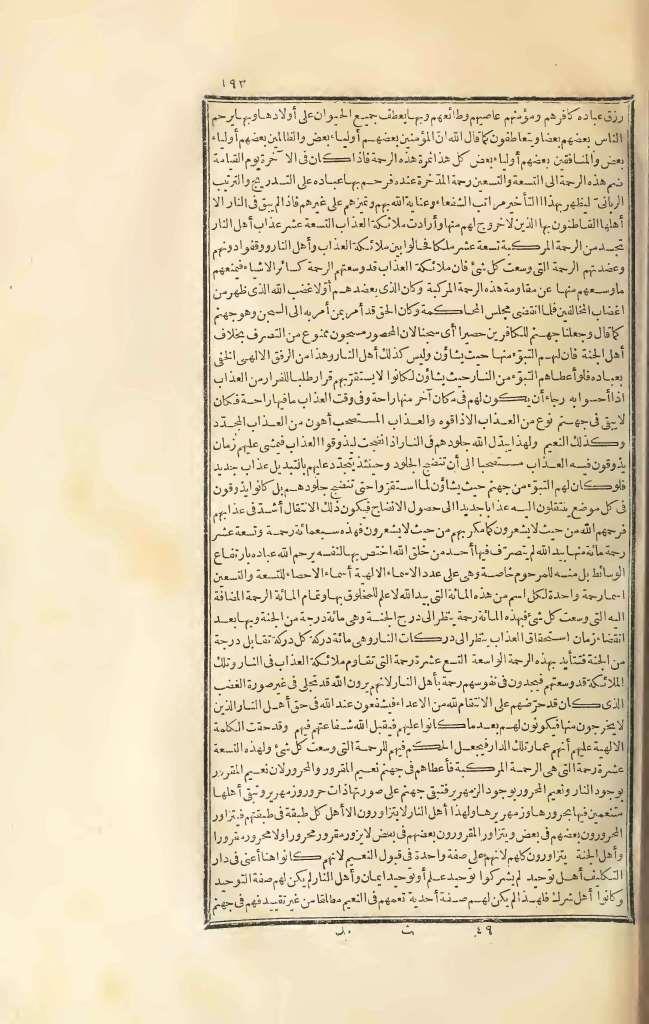 ١٩٣
رزق عباده كافرهم ومؤمنهم عاصيهم وطائعهم وبها يعطف جميع الحيوان على أولادها وبها يرحم
الناس بعضهم بعضا ويتعاطفون كما قال الله ان المؤمنين بعضهم أولياء بعض والظالمين بعضهم أولياء
بعض والمنافقين بعضهم أولياء بعض كل هذا ثمرة هذه الرحمة فاذا كان في الآخرة يوم القيامة
ضم هذه الرحمة الى التسعة والتسعين رحمة المدخرة عنده فرحم بها عباده على التدريج والترتيب
الرباني ليظهر بهذا التأخير مراتب الشفعاء وعناية الله بهم وتميزهم على غيرهم فاذا لم يبق في النار الا
أهلها القاطنون بها الذين لا خروج لهم منها وأرادت ملائكة العذاب التسعة عشر عذاب أهل النار
تجسد من الرحمة المركبة تسعة عشر ملكا فحالوا بين ملائكة العذاب وأهل النار ووقفوا دونهم
وعضدتهم الرحمة التي وسعت كل شئ فان ملائكة العذاب قد وسعتهم الرحمة كسائر الاشياء فيمنعهم
ما وسعهم منها عن مقاومة هذه الرحمة المركبة وكان الذى يعضدهم أولا غضب الله الذى ظهر من
اغضاب المخالفين فلما انقضى مجلس المحاكمة وكان الحق قد أمر بمن أمر به الى السجن وهو جهنم
كما قال وجعلنا جهنم للكافرين حصيرا أى سجنا لان المحصور مسجون ممنوع من التصرف بخلاف
أهل الجنة فان لهم التبوّء منها حيث يشاؤن وليس كذلك أهل النار وهذا من الرفق الالهى الخفى
بعباده فلو أعطاهم التبوّء من النار حيث يشاؤن لكانوا لا يستقر بهم قرار طلبا للفرار من العذاب
اذا أحسوا به رجاء أن يكون لهم في مكان آخر منها راحة وفى وقت العذاب ما فيها راحة فكان
لا يبقى فى جهنم نوع من العذاب الا ذاقوه والعذاب المستصحب أهون من العذاب المجدد
وكذلك النعيم ولهذا يبدل الله جلودهم في النار اذا نضجت ليذوقوا العذاب فيمشى عليهم زمان
يذوقون فيه العذاب مستصحبا الى أن تنضج الجلود وحينئذ يتجدد عليهم بالتبديل عذاب جديد
فلو كان لهم التبوّء من جهنم حيث يشاؤن لما استقروا حتى تنضج جلودهم بل كانوا يذوقون
فى كل موضع ينتقلون اليه عذابا جديدا الى حصول الانضاج فيكون ذلك الانتقال أشد فى عذابهم
فرحمهم الله من حيث لا يشعرون كما مكر بهم من حيث لا يشعرون فهذه سبعمائة رحمة وتسعة عشر
رحمة مائة منها بيد الله لم يتصرف فيها أحد من خلق الله اختص بها لنفسه يرحم الله عباده بارتفاع
الوسائط بل منه للمرحوم خاصة وهى على عدد الاسماء الالهية أسماء الاحصاء التسعة والتسعين
اسما رحمة واحدة لكل اسم من هذه المائة التى بيد الله لا علم للمخلوق بها وتمام المائة الرحمة المضافة
اليه التى وسعت كل شئ فبهذه المائة رحمة ينظر الى درج الجنة وهى مائة درجة من الجنة وبها بعد
انقضاء زمان استحقاق العذاب ينظر الى دركات النار وهى مائة درك كل درك تقابل درجة
من الجنة فتتأيد بهذه الرحمة الواسعة التسع عشرة رحمة التى تقاوم ملائكة العذاب فى النار وتلك
الملائكة قد وسعتهم فيجدون فى نفوسهم رحمة بأهل النار لانهم يرون الله قد تجلى فى غير صورة الغضب
الذى كان قد حرضهم على الانتقام لله من الاعداء فيشفعون عند الله فى حق أهل النار الذين
لا يخرجون منها فيكونون لهم بعد ما كانوا عليهم فيقبل الله شفاعتهم فيهم وقد حقت الكلمة
الالهية عليهم أنهم عمار تلك الدار فيجعل الحكم فيهم للرحمة التى وسعت كل شئ ولهذه التسعة
عشرة رحمة التى هى الرحمة المركبة فأعطاهم فى جهنم نعيم المقرور والمحرور لان نعيم المقرور
بوجود النار ونعيم المحرور بوجود الزمهرير فتبقى جهنم على صورتها ذات حرور وزمهرير ويبقى أهلها
متنعمين فيها بحرورها وزمهريرها ولهذا أهل النار لا يتزاورون الا أهل كل طبقة فى طبقتهم فيتزاور
المحرورون بعضهم فى بعض ويتزاور المقرورون بعضهم فى بعض لا يزور مقرور محرورا ولا محرور مقرورا
وأهل الجنة يتزاورون كلهم لانهم على صفة واحدة فى قبول النعيم لانهم كانوا هنا أعنى فى دار
التكليف أهل توحيد لم يشركوا توحيد علم أو توحيد ايمان وأهل النار لم يكن لهم صفة التوحيد
وكانوا أهل شرك فلهذا لم يكن لهم صفة أحدية تعمهم فى النعيم مطلقا من غير تقييد فهم فى جهنم
٤٩ ث